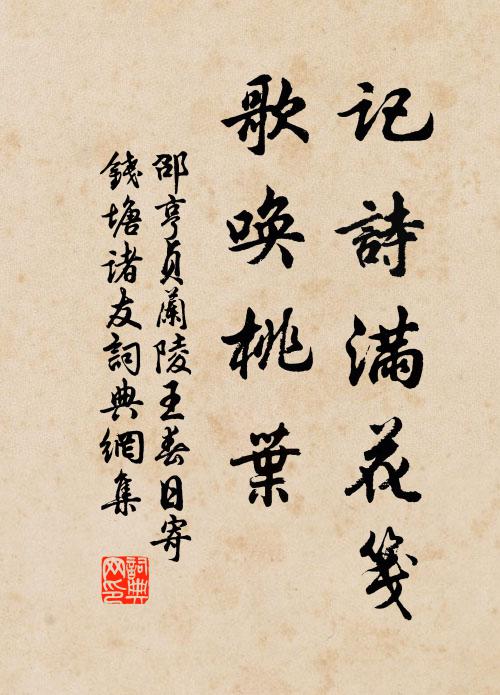 记詩满花箋
歌唤桃葉
邵亨貞蘭陵王春日寄
錢塘诸友詞典網集
詞典
网印